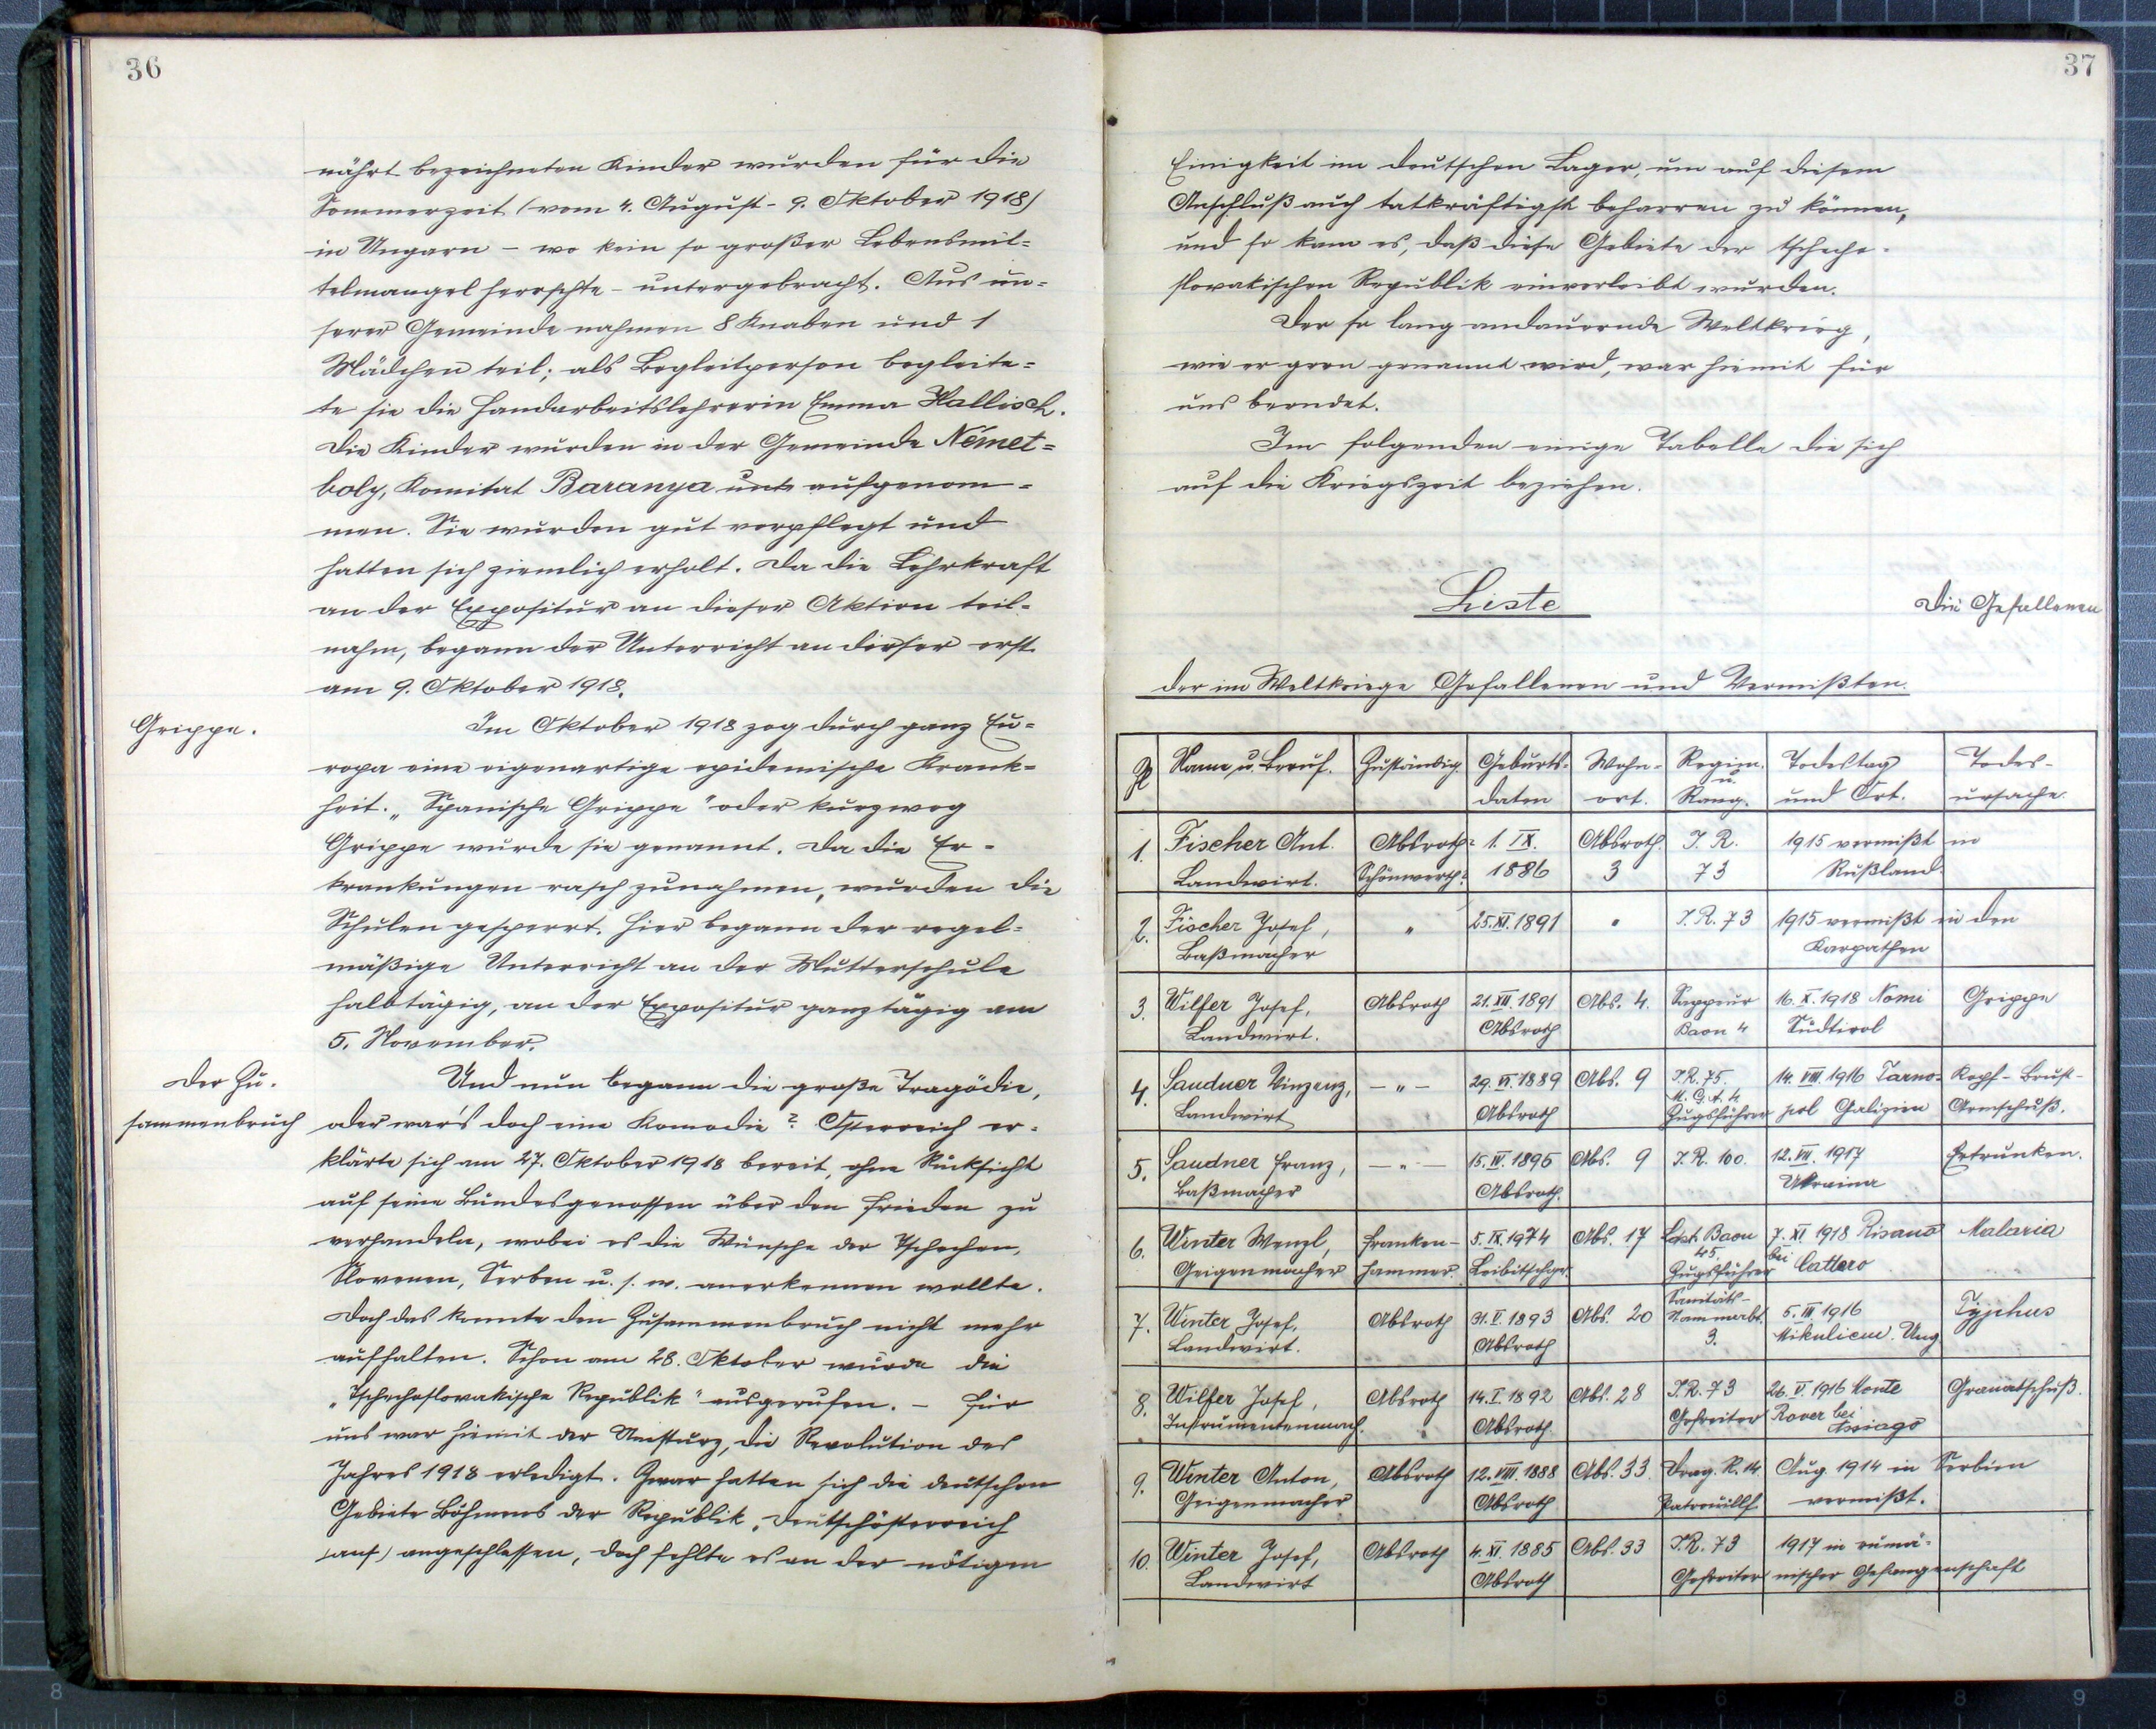 36
nährt bezeichneten Kinder wurden für die
Sommerzeit (vom 4. August - 9. Oktober 1918)
in Ungarn - wo kein so großer Lebensmit=
telmangel herrschte - untergebracht. Aus un=
serer Gemeinde nahmen 8 Knaben und 1
Mädchen teil; als Begleitperson begleite=
te sie die Handarbeitslehrerin Emma Hallisch.
Die Kinder wurden in der Gemeinde Német=
boly, Komitat Baranya unt aufgenom=
men. Sie wurden gut verpflegt und
hatten sich ziemlich erholt. Da die Lehrkraft
an der Expositur an dieser Aktion teil=
nahm, begann der Unterricht an dieser erst
am 9. Oktober 1918.
Grippe.
Im Oktober 1918 zog durch ganz Eu=
ropa eine eigenartige epidemische Krank=
heit. „Spanische Grippe" oder kurzweg
Grippe wurde sie genannt. Da die Er=
krankungen rasch zunahmen, wurden die
Schulen gesperrt. Hier begann der regel=
mäßige Unterricht an der Mutterschule
halbtägig, an der Expositur ganztägig am
5. November.
Der Zu=
sammenbruch
Und nun begann die große Tragödie,
oder war's doch eine Komödie? Österreich er=
klärte sich am 27. Oktober 1918 bereit, ohne Rücksicht
auf seine Bundesgenossen über den Frieden zu
verhandeln, wobei es die Wünsche der Tschechen,
Slovenen, Serben u. s. w. anerkennen wollte.
Doch das konnte den Zusammenbruch nicht mehr
aufhalten. Schon am 28. Oktober wurde die
„Tschechoslovakische Republik" ausgerufen. - Für
uns war hiemit der Umsturz, die Revolution des
Jahres 1918 erledigt. Zwar hatten sich die deutschen
Gebiete Böhmens der Republik „Deutschösterreich
(auf) angeschlossen, doch fehlte es an der nötigen
37
Einigkeit im deutschen Lager, um auf diesem
Anschluß auch tatkräftigst beharren zu können,
und so kam es, daß diese Gebiete der tschecho=
slovakischen Republik einverleibt wurden.
Der so lang andauernde Weltkrieg,
wie er gern genannt wird, war hiemit für
uns beendet.
Im folgenden einige Tabelle die sich
auf die Kriegszeit beziehen.
Liste
Die Gefallenen
der im Weltkriege Gefallenen und Vermißten.
Name u. Beruf. Zuständig. Geburts=daten Wohn=ort. Regim. u. Rang. Todestag und Ort. Todes=ursache.
1. Fischer Ant. Absroth= 1. IX. Absroth. I. R. 1915 vermißt in
Landwirt. Schönwerth. 1886 3 73 Rußland.
2. Fischer Josef, " 25. XI. 1891 " I. R. 73 1915 vermißt in den
Baßmacher Karpathen
3. Wilfer Josef, Absroth 21. XII. 1891 Abs. 4. Sappeur 16. X. 1918 Nomi Grippe
Landwirt. Absroth Baon 4 Südtirol
4. Sandner Vinzenz, - " - 29. VI. 1889 Abs. 9 I. R. 75. 14. VIII. 1916 Tarno= Kopf - Brust -
Landwirt Absroth Zugsführer pol Galizien Armschuß.
5. Sandner Franz, - " - 15. IV. 1895 Abs. 9 I. R. 100. 12. VII. 1917 Ertrunken.
Baßmacher Absroth. Ukraina
6. Winter Wenzl, Franken- 5. IX. 1974 Abs. 17 Baon 7. XI. 1918 Risano Malaria
45.
Geigenmacher hammer. Leibitschgr. Zugsführer bei Cattaro
7. Winter Josef, Absroth 31. V. 1893 Abs. 20 Sanitäts- 5. III. 1916 Typhus
Landwirt. Absroth 3. Ung
8. Wilfer Josef, Absroth 14. I. 1892 Abs. 28 I. R. 73 26. V. 1916 Monte Granatschuß.
Instrumentenmach. Absroth. Gefreiter Rover bei Assiago
9. Winter Anton, Absroth 12. VIII. 1888 Abs. 33 Drag. R. 14 Aug. 1914 in Serbien
Geigenmacher Absroth Patrouillf. vermißt.
10. Winter Josef, Absroth 4. XI. 1885 Abs. 33 I. R. 73 1917 in rumä=
Landwirt Absroth Gefreiter nischer Gefangenschaft